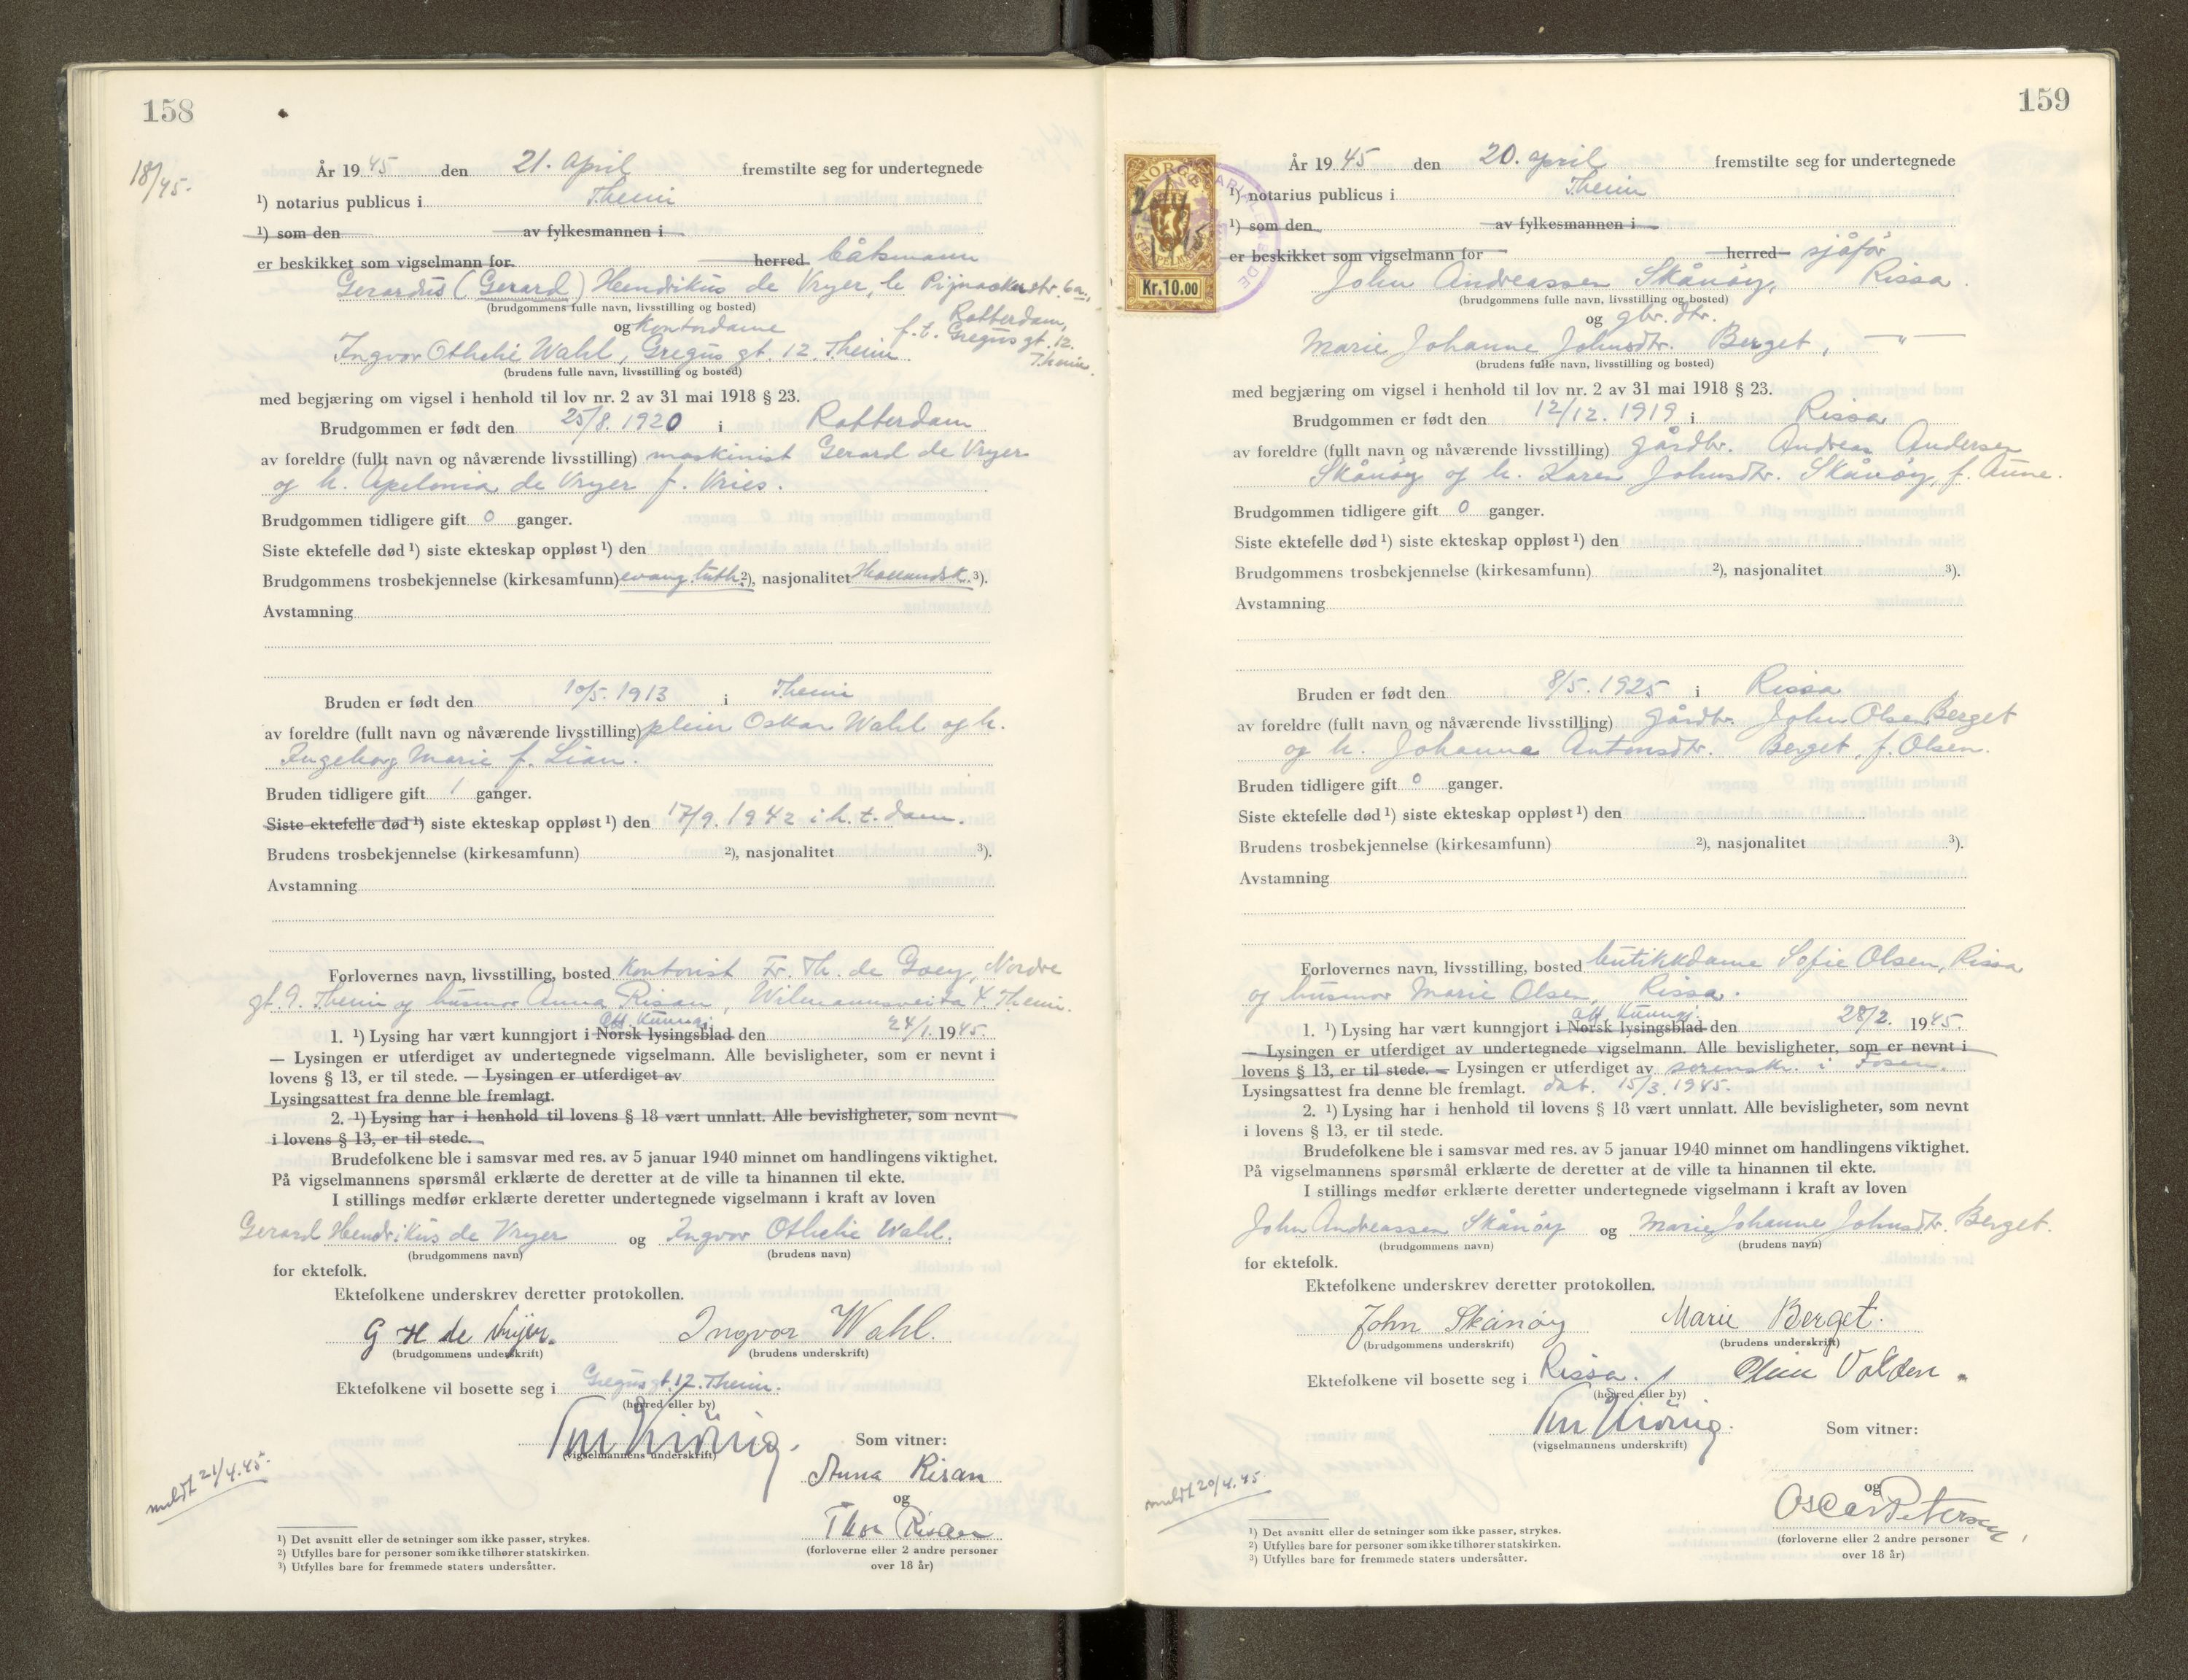 158
18/45.
År 1945 den 21. April fremstilte seg for undertegnede
¹) notarius publicus i Theim
¹) som den av fylkesmannen i
er beskikket som vigselmann for herred båtsmann
Gerardus (Gerard) Hendrikus de Vryer, le Pijnackerstr. 6a,
(brudgommens fulle navn, livsstilling og bosted)
Rotterdam,
og Kontordame f. t. Gregus gt. 12.
Ingvor Othelie Wahl, Gregus gt. 12. Theim. Theim.
(brudens fulle navn, livsstilling og bosted)
med begjæring om vigsel i henhold til lov nr. 2 av 31 mai 1918 § 23.
Brudgommen er født den 25/8. 1920 i Rotterdam
av foreldre (fullt navn og nåværende livsstilling) maskinist Gerard de Vryer
og h. Apelonia de Vryer f. Vries.
Brudgommen tidligere gift 0 ganger.
Siste ektefelle død ¹) siste ekteskap oppløst ¹) den
Brudgommens trosbekjennelse (kirkesamfunn) evang. luth. ²), nasjonalitet Hollandsk. ³).
Avstamning
Bruden er født den 10/5. 1913 i Theim
av foreldre (fullt navn og nåværende livsstilling) pleier Oskar Wahl og h.
Ingeborg Marie f. Lian.
Bruden tidligere gift 1 ganger.
Siste ektefelle død ¹) siste ekteskap oppløst ¹) den 17/9. 1942 i h. t. dom.
Brudens trosbekjennelse (kirkesamfunn) ²), nasjonalitet ³).
Avstamning
Forlovernes navn, livsstilling, bosted Kontorist Fr. Th. de Goey, Nordre
gt. 9. Theim og husmor Anna Risan, Wilmannsveita 4. Theim.
Off. Kunngj.
1. ¹) Lysing har vært kunngjort i Norsk lysingsblad den 24/1. 1945.
— Lysingen er utferdiget av undertegnede vigselmann. Alle bevisligheter, som er nevnt i
lovens § 13, er til stede. — Lysingen er utferdiget av
Lysingsattest fra denne ble fremlagt.
2. ¹) Lysing har i henhold til lovens § 18 vært unnlatt. Alle bevisligheter, som nevnt
i lovens § 13, er til stede.
Brudefolkene ble i samsvar med res. av 5 januar 1940 minnet om handlingens viktighet.
På vigselmannens spørsmål erklærte de deretter at de ville ta hinannen til ekte.
I stillings medfør erklærte deretter undertegnede vigselmann i kraft av loven
Gerard Hendrikus de Vryer og Ingvor Othelie Wahl.
(brudgommens navn) (brudens navn)
for ektefolk.
Ektefolkene underskrev deretter protokollen.
G H de Vrijer. Ingvor Wahl.
(brudgommens underskrift) (brudens underskrift)
Ektefolkene vil bosette seg i Gregus gt. 12. Theim.
(herred eller by)
(vigselmannens underskrift) Som vitner:
Anna Risan
og
meldt 21/4.45.
Thor Risan
(forloverne eller 2 andre personer
over 18 år)
¹) Det avsnitt eller de setninger som ikke passer, strykes.
²) Utfylles bare for personer som ikke tilhører statskirken.
³) Utfylles bare for fremmede staters undersåtter.
159
NORGE
Kr.10.00
År 1945 den 20. april fremstilte seg for undertegnede
¹) notarius publicus i Theim
¹) som den av fylkesmannen i
er beskikket som vigselmann for herred sjåfør
John Andreassen Skånøy, Rissa.
(brudgommens fulle navn, livsstilling og bosted)
og gbr. dtr.
Marie Johanne Johnsdtr. Berget, — " —
(brudens fulle navn, livsstilling og bosted)
med begjæring om vigsel i henhold til lov nr. 2 av 31 mai 1918 § 23.
Brudgommen er født den 12/12. 1919 i Rissa
av foreldre (fullt navn og nåværende livsstilling) gårdbr. Andreas Andersen
Skånøy og h. Karen Johnsdtr. Skånøy, f. Aune.
Brudgommen tidligere gift 0 ganger.
Siste ektefelle død ¹) siste ekteskap oppløst ¹) den
Brudgommens trosbekjennelse (kirkesamfunn) ²), nasjonalitet ³).
Avstamning
Bruden er født den 8/5. 1925 i Rissa
av foreldre (fullt navn og nåværende livsstilling) gårdbr. John Olsen Berget
og h. Johanna Antonsdtr. Berget, f. Olsen.
Bruden tidligere gift 0 ganger.
Siste ektefelle død ¹) siste ekteskap oppløst ¹) den
Brudens trosbekjennelse (kirkesamfunn) ²), nasjonalitet ³).
Avstamning
Forlovernes navn, livsstilling, bosted butikkdame Sofie Olsen, Rissa
og husmor Marie Olsen, Rissa.
Off. Kunngj.
1. ¹) Lysing har vært kunngjort i Norsk lysingsblad den 28/2. 1945.
— Lysingen er utferdiget av undertegnede vigselmann. Alle bevisligheter, som er nevnt i
lovens § 13, er til stede. — Lysingen er utferdiget av sorenskr. i Fosen.
Lysingsattest fra denne ble fremlagt. dat. 15/3. 1945.
2. ¹) Lysing har i henhold til lovens § 18 vært unnlatt. Alle bevisligheter, som nevnt
i lovens § 13, er til stede.
Brudefolkene ble i samsvar med res. av 5 januar 1940 minnet om handlingens viktighet.
På vigselmannens spørsmål erklærte de deretter at de ville ta hinannen til ekte.
I stillings medfør erklærte deretter undertegnede vigselmann i kraft av loven
John Andreassen Skånøy og Marie Johanne Johnsdtr. Berget.
(brudgommens navn) (brudens navn)
for ektefolk.
Ektefolkene underskrev deretter protokollen.
John Skånøy Marie Berget.
(brudgommens underskrift) (brudens underskrift)
Ektefolkene vil bosette seg i Rissa. Volden
(herred eller by)
(vigselmannens underskrift) Som vitner:
og
meldt 20/4.45
Oscar Petersen
(forloverne eller 2 andre personer
over 18 år)
¹) Det avsnitt eller de setninger som ikke passer, strykes.
²) Utfylles bare for personer som ikke tilhører statskirken.
³) Utfylles bare for fremmede staters undersåtter.